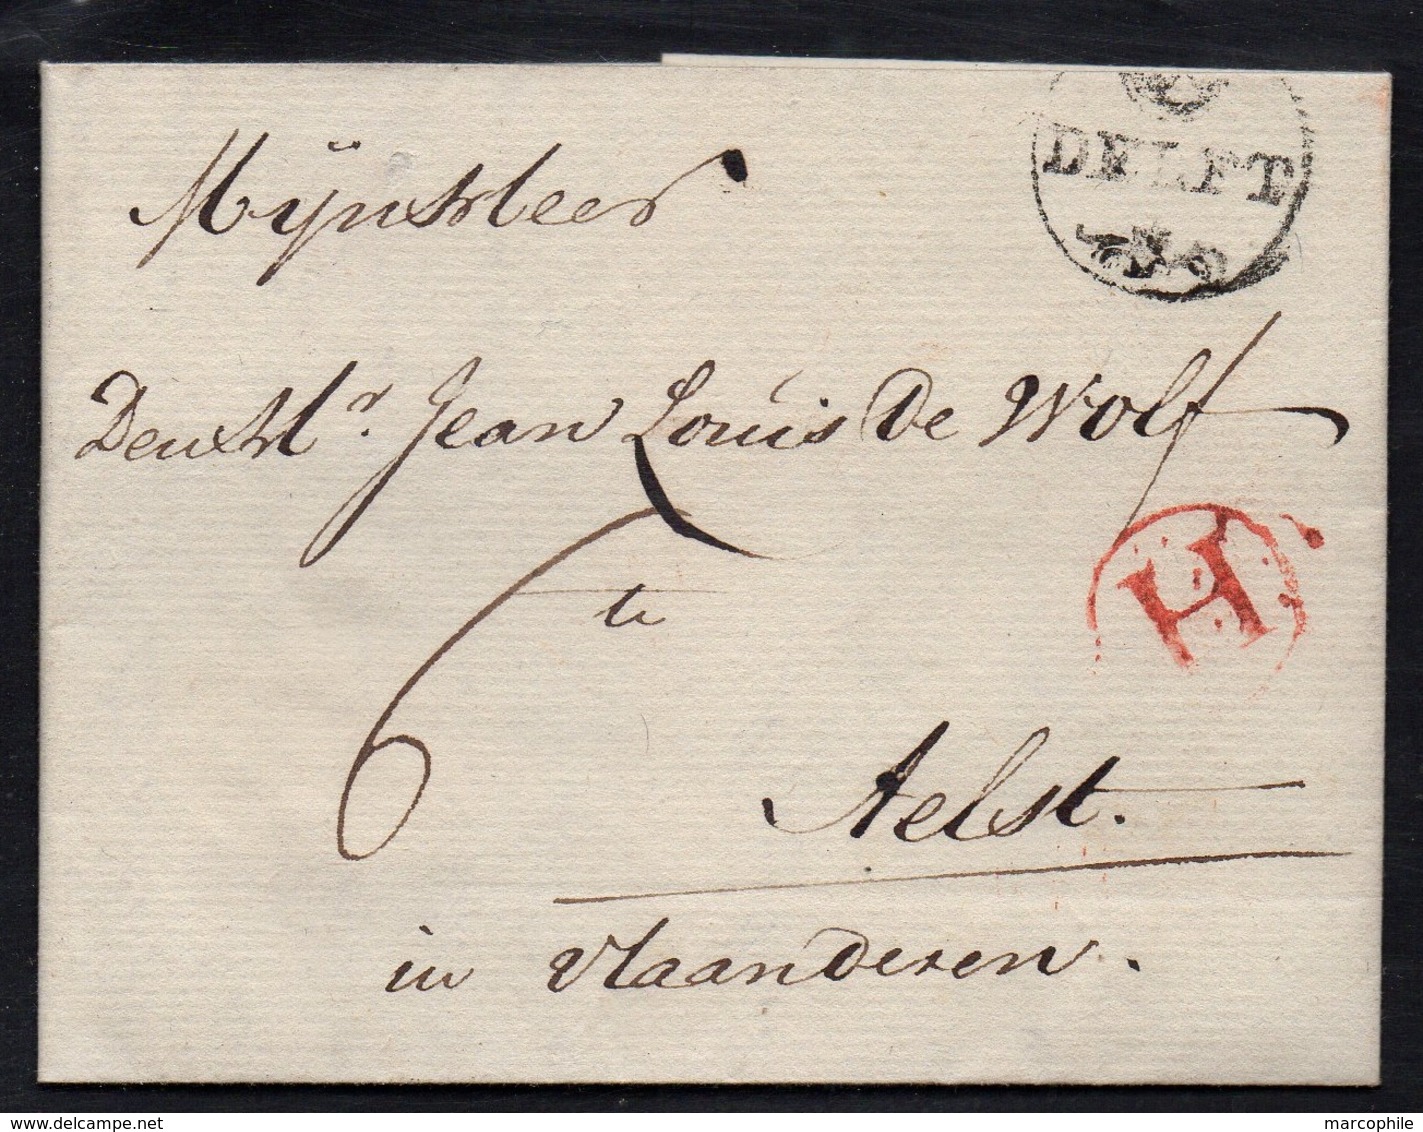 DELFT
Mijn Heer
Den Hr. Jean Louis De Wolf
H
te
6
Aelst.
in Vlaanderen.
www.delcampe.net
marcophile